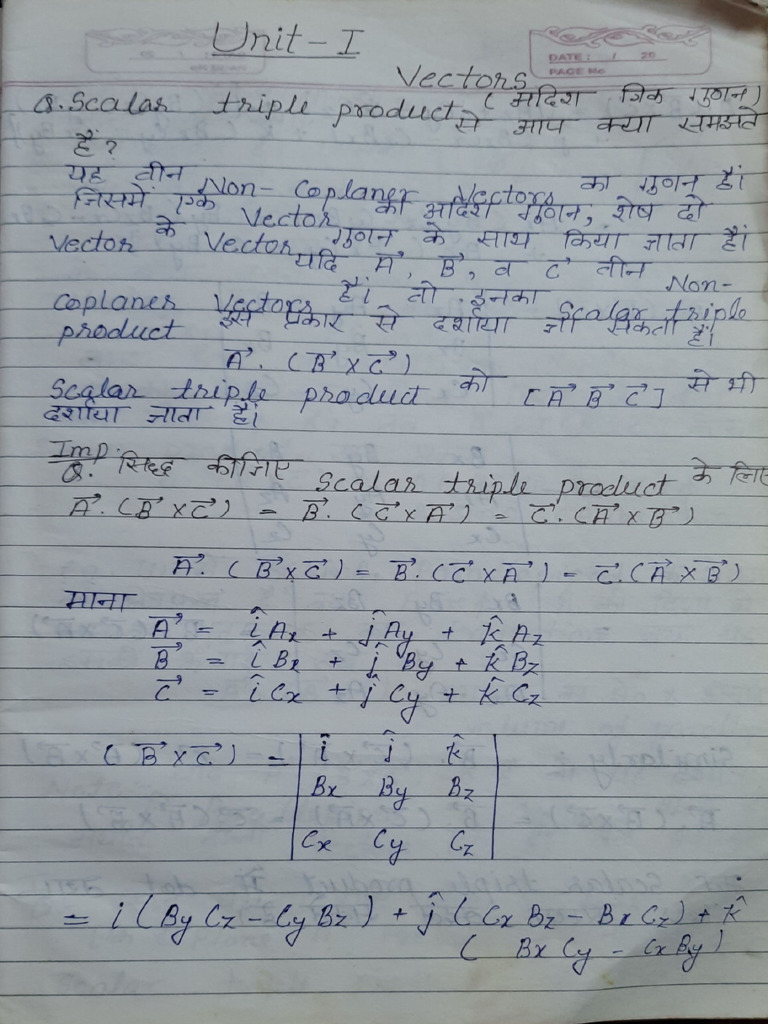 Unit - I
DATE: / / 20
PAGE No
Vectors
Q. Scalar triple product (सदिश त्रिक गुणन) से आप क्या समझते
हैं?
यह तीन Non-Coplaner Vectors का गुणन है।
जिसमें एक Vector का अदिश गुणन, शेष दो
Vector के Vector गुणन के साथ किया जाता है।
यदि A⃗, B⃗, व C⃗ तीन Non-
Coplaner Vectors है। तो इनका Scalar triple
product इस प्रकार से दर्शाया जा सकता है।
A⃗. (B⃗ × C⃗)
Scalar triple product को [A⃗ B⃗ C⃗] से भी
दर्शाया जाता है।
Imp.
Q. सिद्ध कीजिए Scalar triple product के लिए
A⃗. (B⃗ × C⃗) = B⃗. (C⃗ × A⃗) = C⃗. (A⃗ × B⃗)
A⃗. (B⃗ × C⃗) = B⃗. (C⃗ × A⃗) = C⃗. (A⃗ × B⃗)
माना
A⃗ = îAx + ĵAy + k̂Az
B⃗ = îBx + ĵBy + k̂Bz
C⃗ = îCx + ĵCy + k̂Cz
(B⃗ × C⃗) = | î ĵ k̂ |
| Bx By Bz |
| Cx Cy Cz |
= i (By Cz - Cy Bz) + ĵ (Cx Bz - Bx Cz) + k̂
( Bx Cy - Cx By)